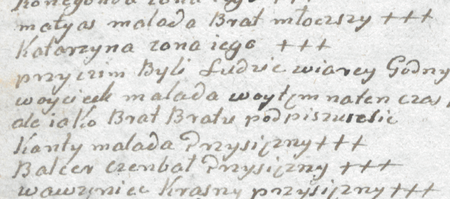 Konegonda zona iego +++
matyas malada Brat młoczszy +++
Katarzyna zona iego +++
przyczim Byli Ludzie wiarey Godny
woyciek malada woytem naten czas
ale iako Brat Bratu podpisuiesie
Kanty malada Przysiezny +++
Balcer czenbal Przysiezny +++
wawrzyniec Krasny przysiezny +++